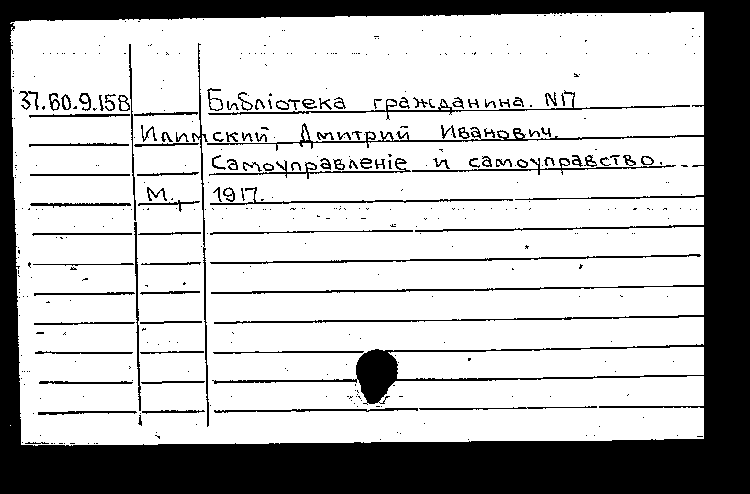 37.60.9.158 Библіотека гражданина. N17
Илимский, Дмитрий Иванович.
Самоуправленіе и самоуправство.
М., 1917.